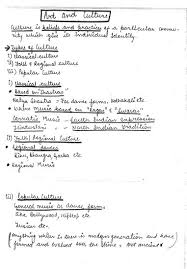 Art and Culture
Culture is beliefs and practice of a particular commu-
nity which give its Individual Identity
→ Types of Culture
(I) Classical culture
(II) Folk & Regional culture
(III) Popular Culture
(I) Classical Culture
• Based on "Shastras"
Natya Shastra - for dance forms, Kathakali etc
• Regional Music based on "Raga" & "Gharana"
Carnatic Music - South Indian expression
Hindustani - North Indian Tradition
(II) Folk/Regional culture
• Regional Dances
Bihu, bhangra, Garba etc
• Regional
(III) Popular Culture
General music or dance forms
like Bollywood, etc
Fusion etc.
(anything which is seen in modern generation and have
formed and evolved over the time & not ancient)